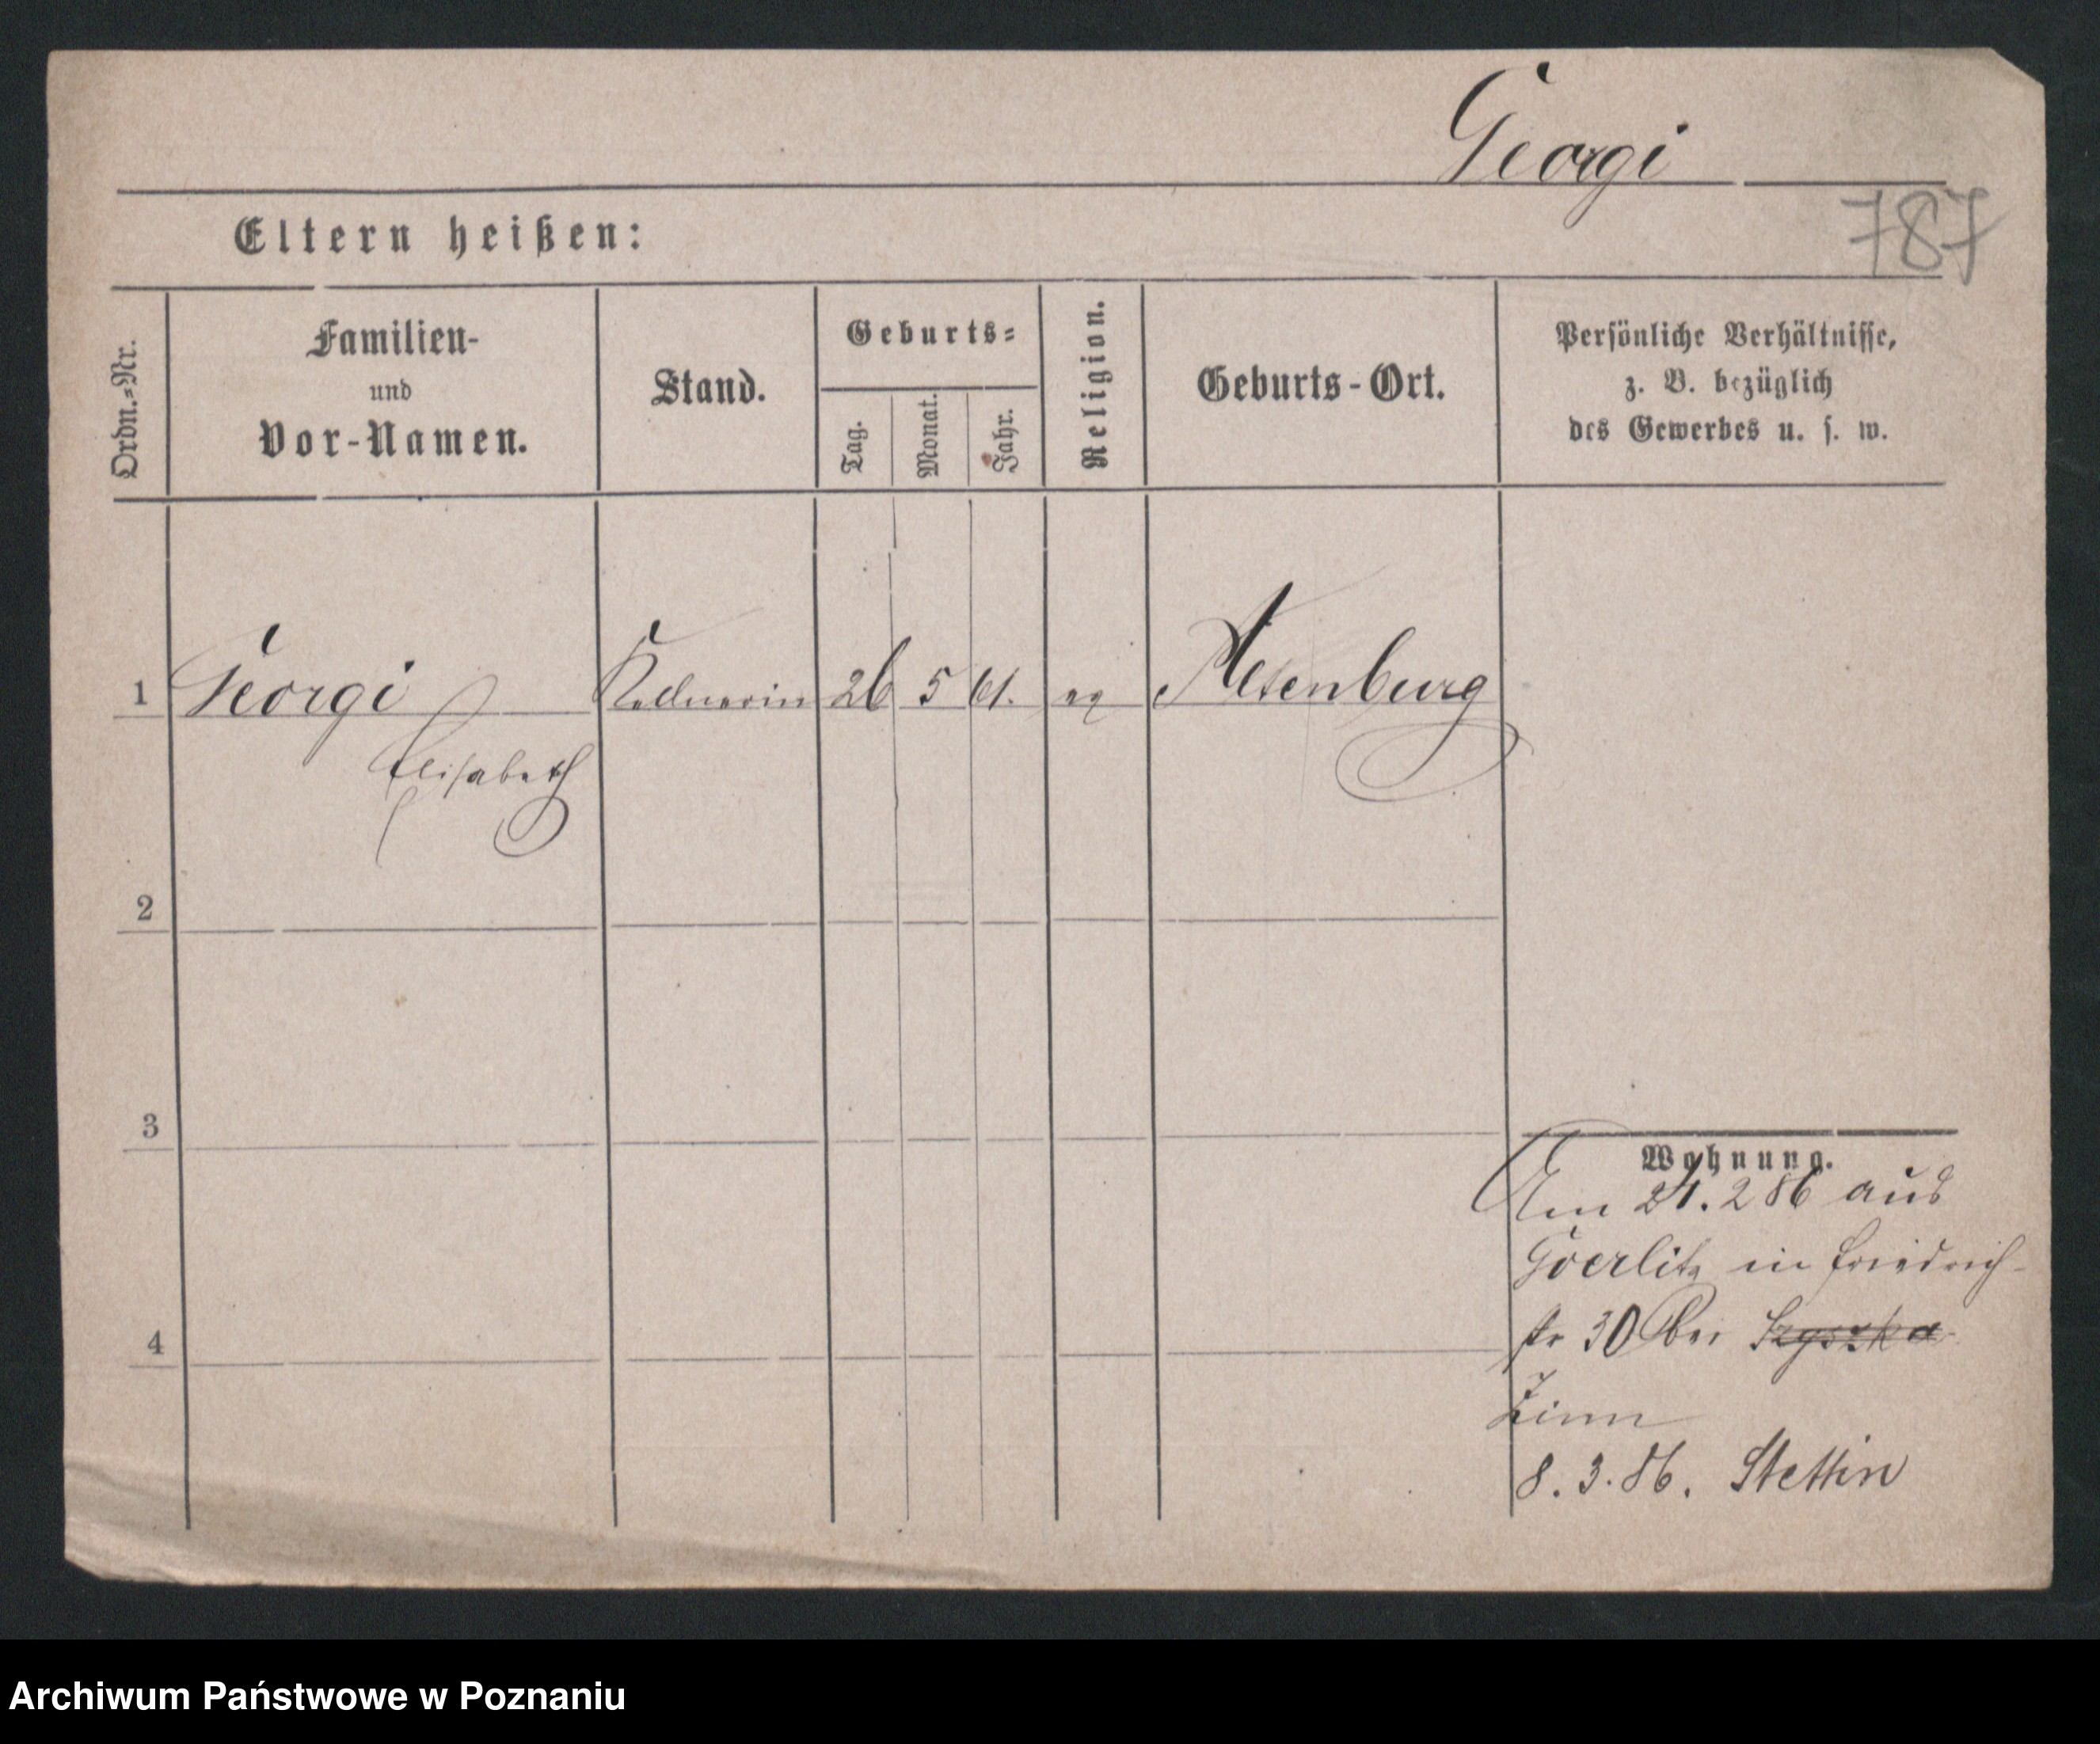 Georgi
787
Eltern heißen:
Ordn.-Nr.
Familien-
und
Vor-Namen.
Stand.
Geburts-
Tag.
Monat.
Jahr.
Religion.
Geburts-Ort.
Persönliche Verhältnisse,
z. B. bezüglich
des Gewerbes u. s. w.
1 Georgi 26 5 61. ev
Elisabeth
2
3
4
Wohnung.
Am 24. 2 86 aus
Goerlitz in Friedrich-
str 30 bei Szyszka
Zinn
8. 3. 86. Stettin
Archiwum Państwowe w Poznaniu